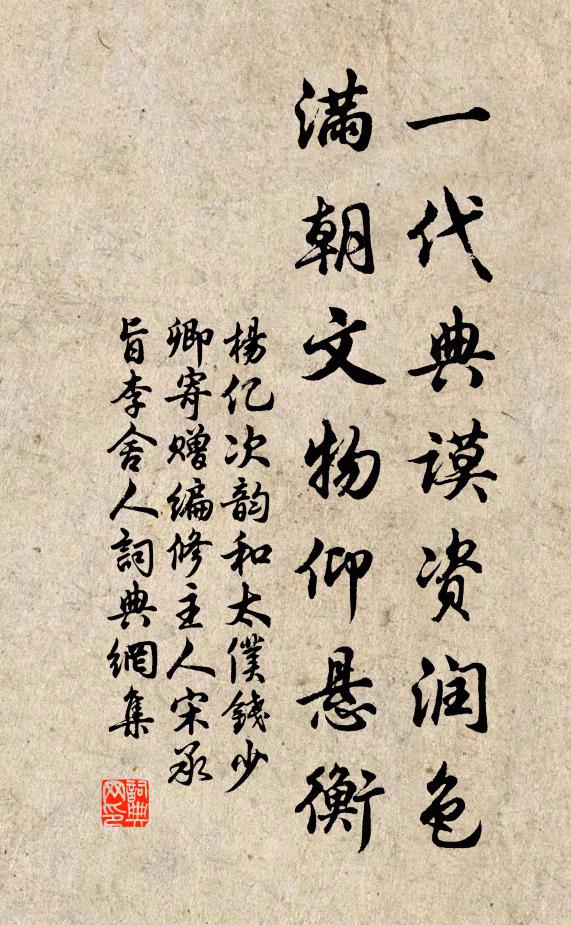 一代典謨资润色
满朝文物仰悬衡
楊亿次韵和太僕錢少
卿寄赠编修主人宋承
旨李舍人詞典網集
詞典
网印